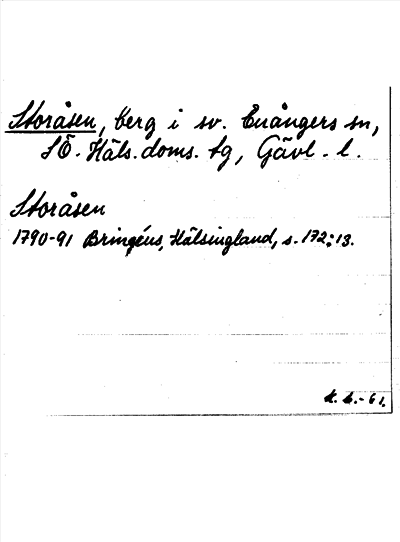 Storåsen, berg i sv. Enångers sn,
SÖ. Häls. doms. tg, Gävl. l.
Storåsen
1790-91 Bringéus, Hälsingland, s. 172:13.
-61.